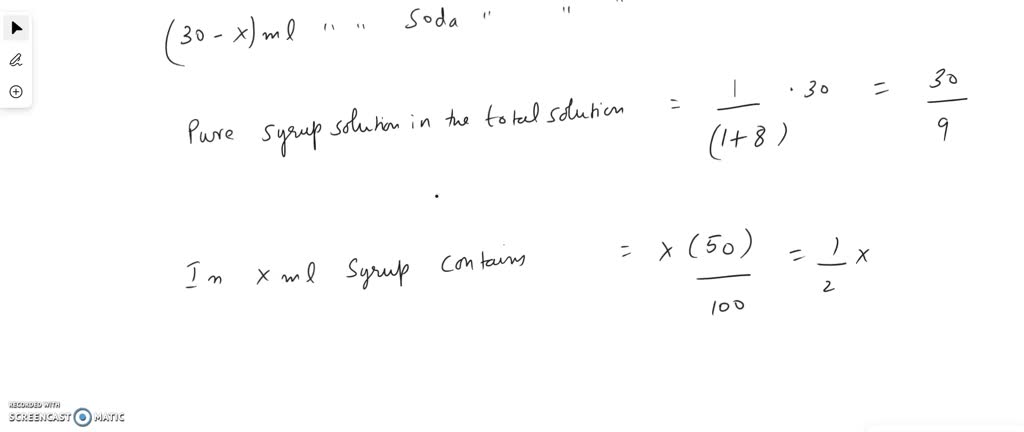 (30 - x) ml " " Soda " " "
Pure syrup solution in the total solution = 1/(1+8) · 30 = 30/9
In x ml Syrup contains = x (50)/100 = 1/2 x
RECORDED WITH
SCREENCAST MATIC